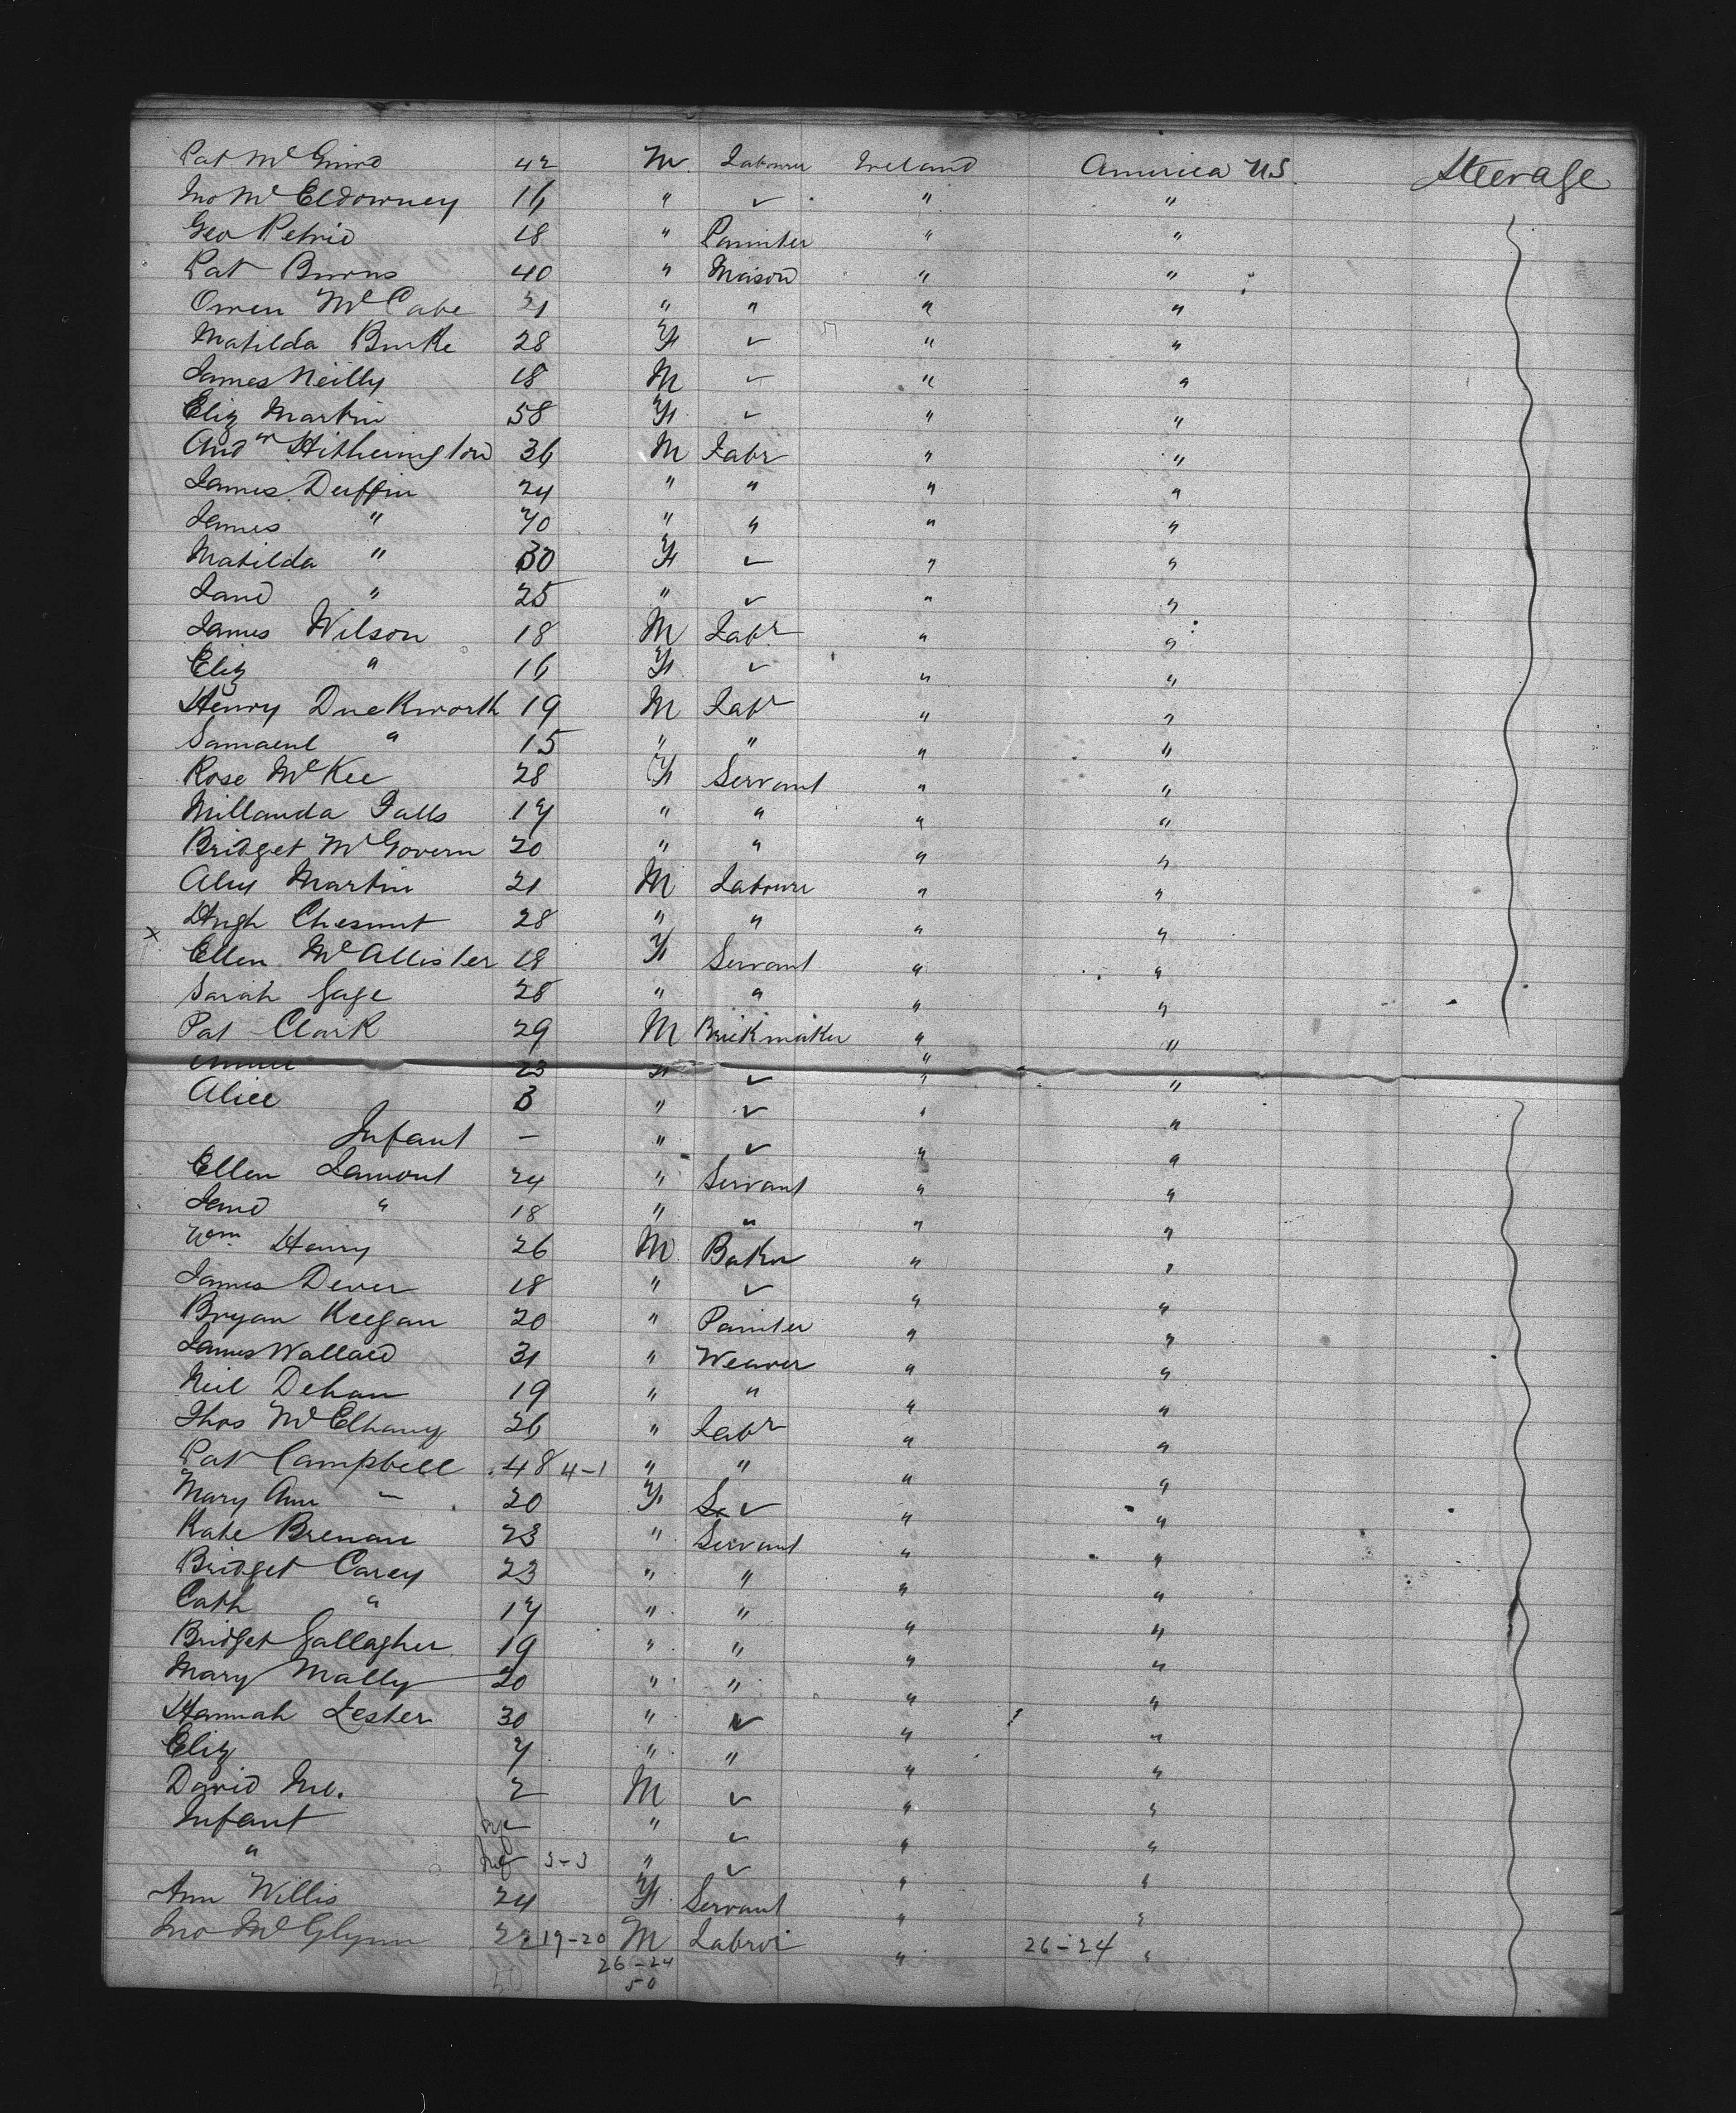 Pat McGuire 42 M Labourer Ireland America US Steerage
Jno McEldowney 16 " ✓ " "
Geo Petrie 18 " Painter " "
Pat Burns 40 " Mason " "
Owen McCabe 21 " " " "
Matilda Burke 28 F ✓ " "
James Neilly 18 M ✓ " "
Eliz Martin 58 F ✓ " "
Andw Hitherington 36 M Labr " "
James Duffin 24 " " " "
James " 70 " " " "
Matilda " 30 F ✓ " "
Jane " 25 " ✓ " "
James Wilson 18 M Labr " "
Eliz " 16 F ✓ " "
Henry Duckworth 19 M Labr " "
Samuel " 15 " " " "
Rose McKee 28 F Servant " "
Millanda Falls 17 " " " "
Bridget McGovern 20 " " " "
Alex Martin 21 M Labourer " "
Hugh Chesnut 28 " " " "
x Ellen McAllister 18 F Servant " "
Sarah Gage 28 " " " "
Pat Clark 29 M Brickmaker " "
23 " ✓ " "
Alice 3 " ✓ " "
Infant — " ✓ " "
Ellen Lamont 24 " Servant " "
Jane " 18 " " " "
Wm Henry 26 M Baker " "
James Dever 18 " ✓ " "
Bryan Keegan 20 " Painter " "
James Wallace 31 " Weaver " "
Neil Dehan 19 " " " "
Thos McElhany 26 " Labr " "
Pat Campbell 48 4-1 " " " "
Mary Ann " 20 F Se ✓ " "
Kate Brenan 23 " Servant " "
Bridget Carey 23 " " " "
Cath " 17 " " " "
Bridget Gallagher 19 " " " "
Mary Mally 20 " " " "
Hannah Lester 30 " ✓ " "
Eliz 7 " " " "
David Mc. 2 M ✓ " "
Infant Inf " ✓ " "
" Inf 3-3 " ✓ " "
Ann Willis 24 F Servant " "
Jno McGlynn 22 19-20 M Labror " 26-24 "
26-24
50 50